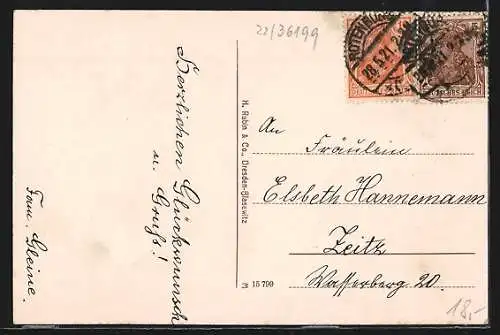 22/36199
Herzlichen Glückwunsch
u. Gruß!
Fam. Gleine.
H. Rubin & Co., Dresden-Blasewitz
15 790
28.5.21.
An
Fräulein
Elsbeth Hannemann
Zeitz
Wasserberg 20.
18,-